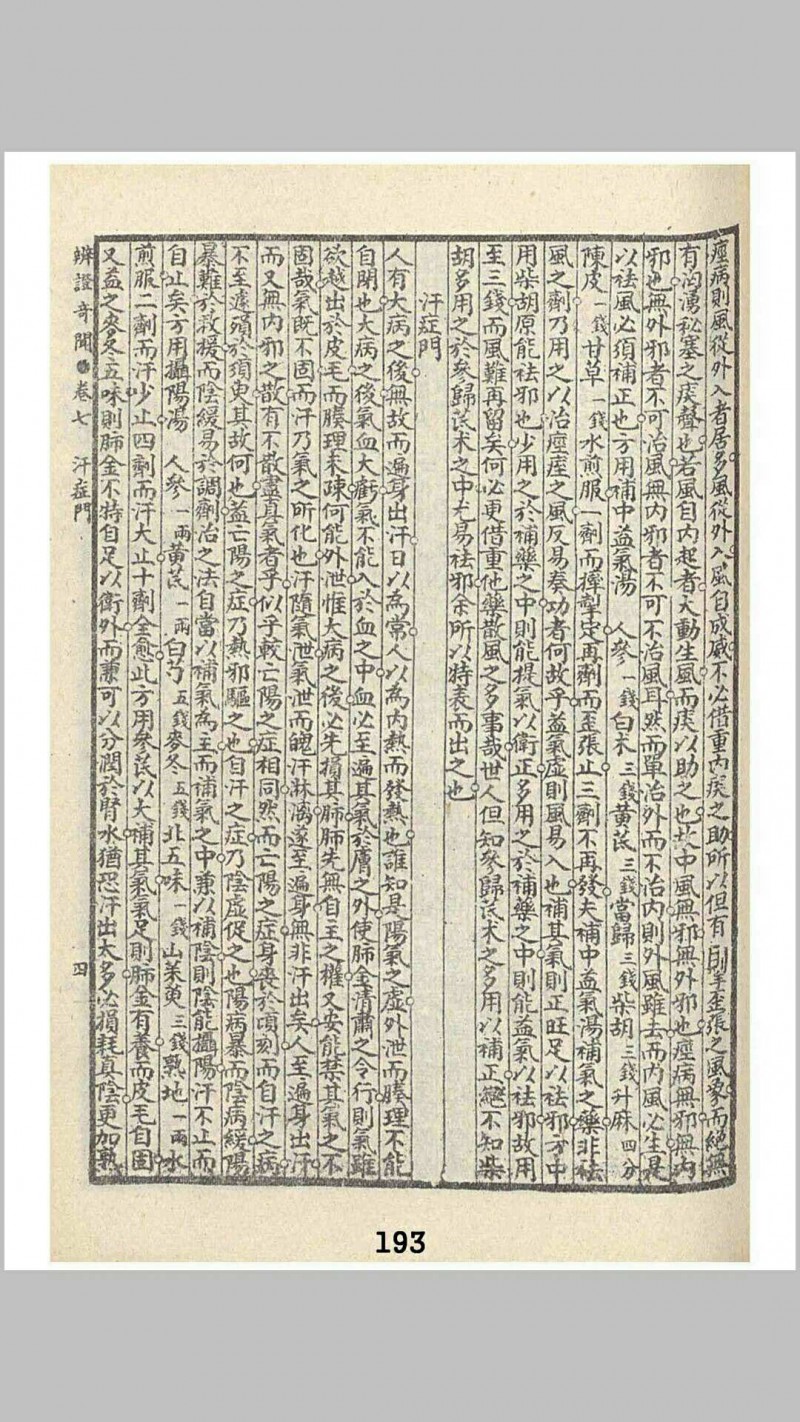 痙病則風從外入者居多風從外入風自成威不必借重內痰之助所以但有手歪張之風象而絕無
有洶湧秘塞之痰聲也若風自內起者火動生風而痰以助之也故中風無邪無外邪也痙病無邪無內
邪也無外邪者不可治風無內邪者不可不治風耳然而單治外而不治內則外風雖去而內風必生是
以祛風必須補正也方用補中益氣湯 人參一錢白朮三錢黃茋三錢當歸三錢柴胡三錢升麻四分
陳皮一錢甘草一錢水煎服一劑而掣定再劑而歪張止三劑不再發夫補中益氣湯補氣之藥非祛
風之劑乃用之以治痙㾏之風反易奏功者何故乎蓋氣虛則風易入也補其氣則正旺足以祛邪方中
用柴胡原能祛邪也少用之於補藥之中則能提氣以衛正多用之於補藥之中則能益氣以祛邪故用
至三錢而風難再留矣何必更借重他藥散風之多事哉世人但知參歸茋朮之多用以補正絕不知柴
胡多用之於參歸茋朮之中尤易祛邪余所以特表而出之也
汗症門
人有大病之後無故而遍身出汗日以為常人以為內熱而發熱也誰知是陽氣之虛外泄而腠理不能
自閉也大病之後氣血大虧氣不能入於血之中血必至遍其氣於膚之外使肺金清肅之令行則氣雖
欲越出於皮毛而腠理未疎何能外泄惟大病之後必先損其肺肺先無自主之權又安能禁其氣之不
固哉氣既不固而汗乃氣之所化也汗隨氣泄氣泄而魄汗淋漓遂至遍身無非汗出矣人至遍身出汗
而又無內邪之散有不散盡真氣者乎似乎較亡陽之症相同然而亡陽之症身喪於頃刻而自汗之病
不至遽殞於須臾其故何也蓋亡陽之症乃熱邪驅之也自汗之症乃陰虛促之也陽病暴而陰病緩陽
暴難於救援而陰緩易於調劑治之法自當以補氣為主而補氣之中兼以補陰則陰能攝陽汗不止而
自止矣方用攝陽湯 人參一兩黃茋一兩白芍五錢麥冬五錢北五味一錢山茱萸三錢熟地一兩水
煎服二劑而汗少止四劑而汗大止十劑全愈此方用參茋以大補其氣氣足則肺金有養而皮毛自固
又益之麥冬五味則肺金不特自足以衛外而兼可以分潤於腎水猶恐汗出太多必損耗真陰更加熟
辨證奇聞 卷七 汗症門 四
193